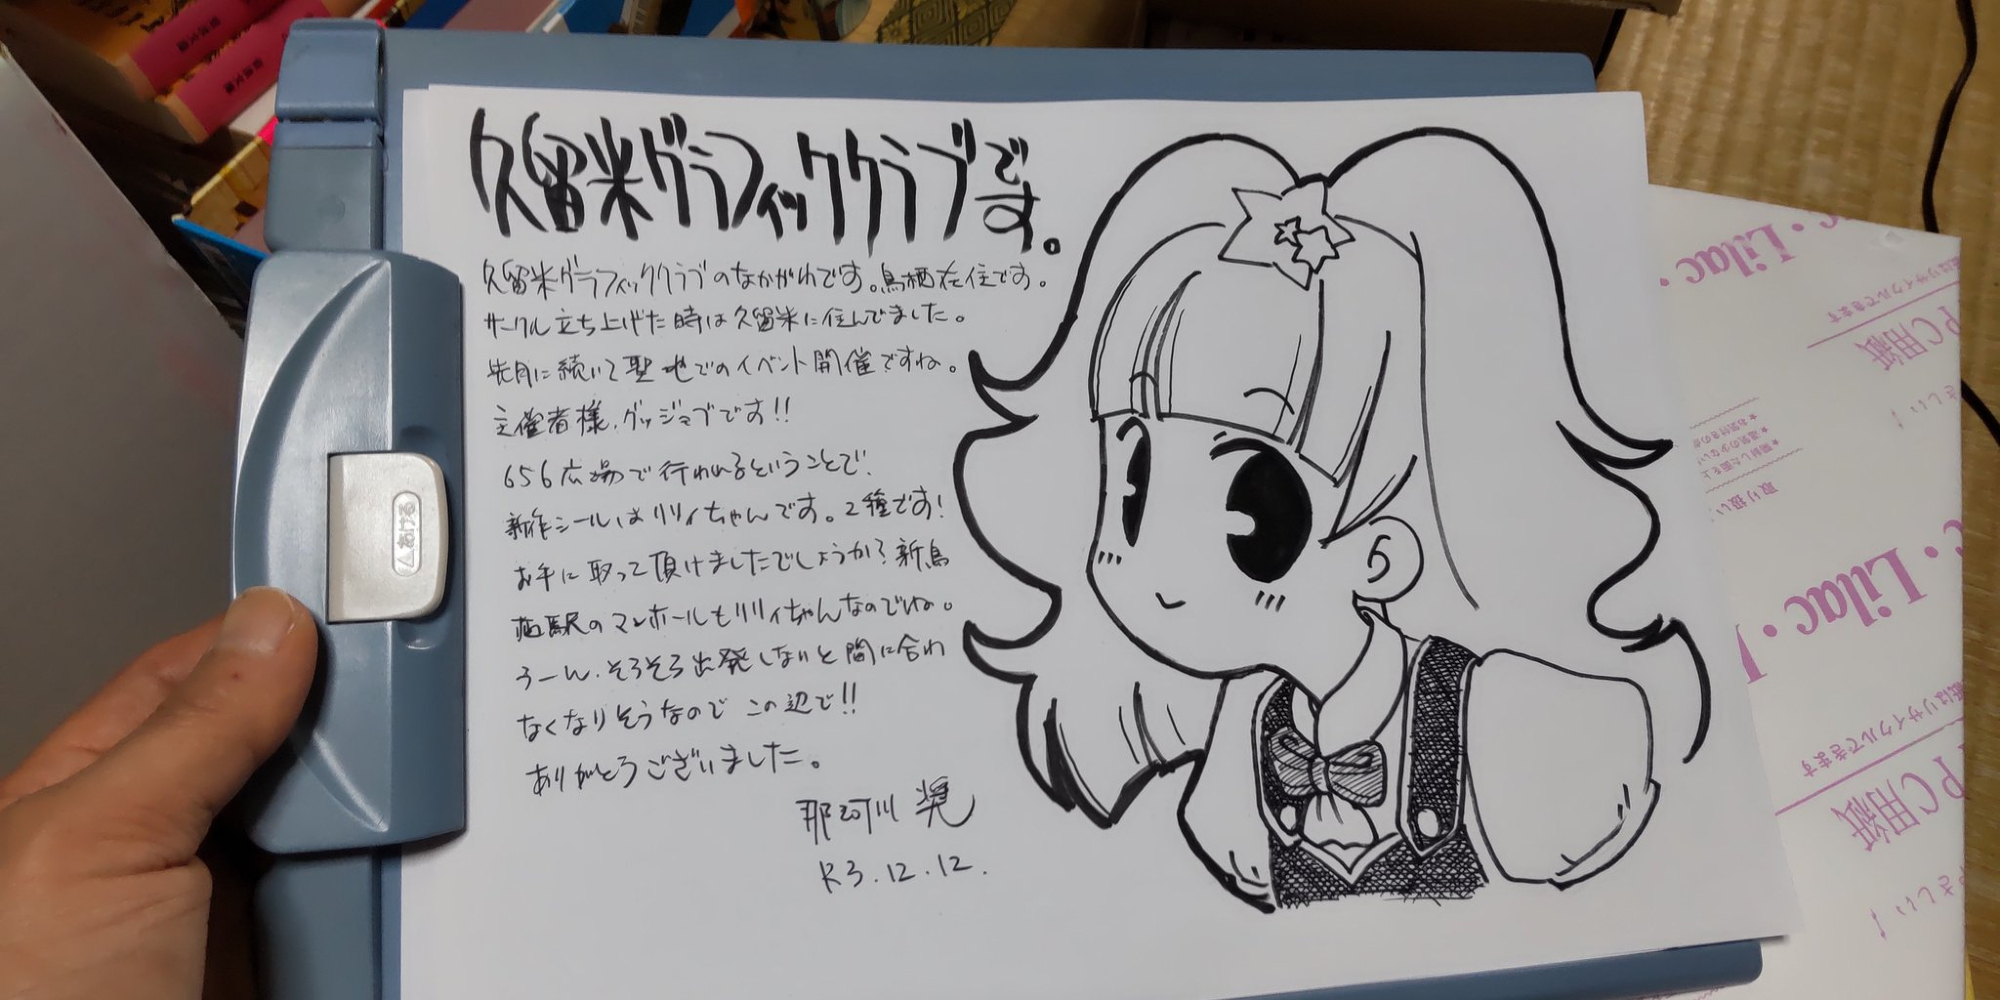 久留米グラフィッククラブです。
久留米グラフィッククラブのなかがわです。鳥栖在住です。
サークル立ち上げた時は久留米に住んでました。
先月に続いて聖地でのイベント開催ですね。
主催者様、グッジョブです!!
656広場で行われるということで、
新作シールはリリィちゃんです。2種です!
お手に取って頂けましたでしょうか?新鳥
栖駅のマンホールもリリィちゃんなのでね。
うーん、そろそろ出発しないと間に合わ
なくなりそうなのでこの辺で!!
ありがとうございました。
那珂川 奨
R3.12.12.
△あける
Lilac
紙はリサイクルできます
PC用紙
やさしい!
取り扱い
Lilac
紙はリサイクルできます
PC用紙
やさしい!